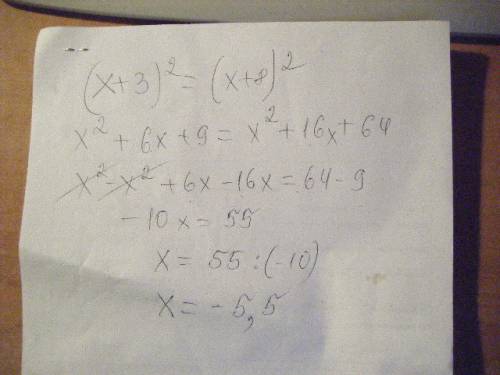 (x+3)² = (x+8)²
x² + 6x + 9 = x² + 16x + 64
x² - x² + 6x - 16x = 64 - 9
- 10x = 55
x = 55 : (-10)
x = - 5,5